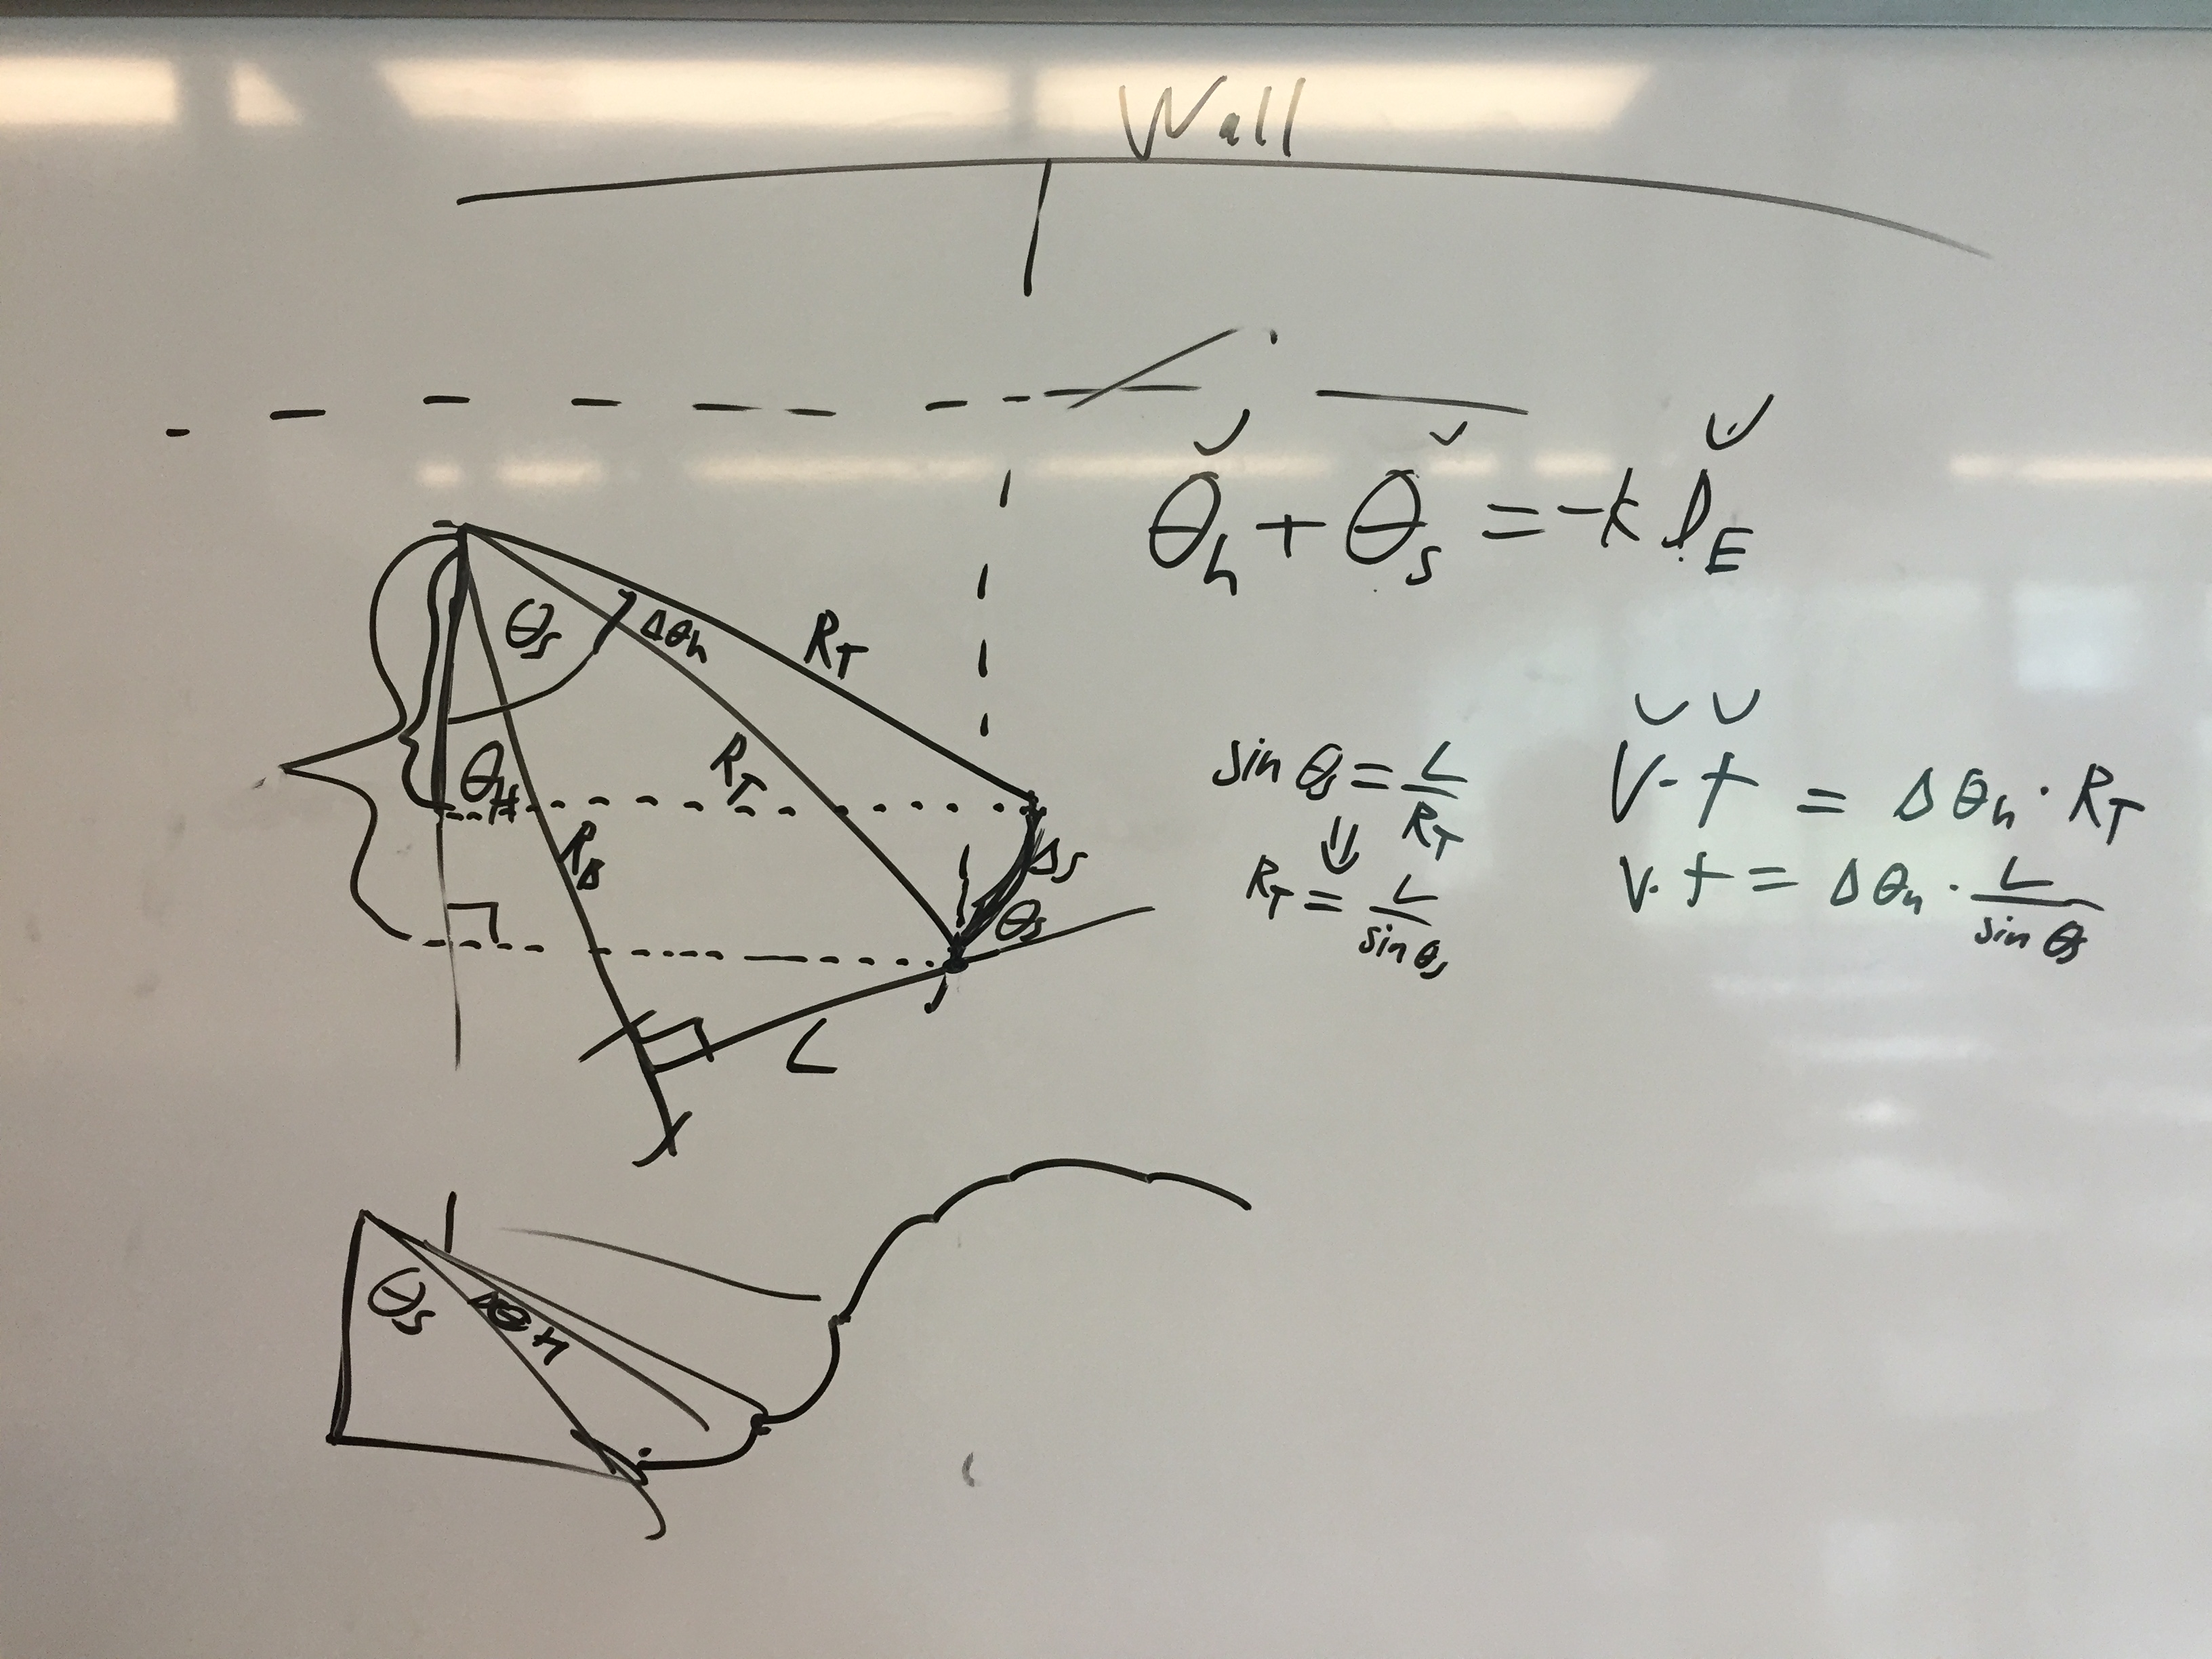 Wall
θh + θs = -k lE
θs
Δθh
RT
RT
θH
RB
Δs
θs
L
sin θs = L/RT
⇓
RT = L/sin θs
V·t = Δθh · RT
V·t = Δθh · L/sin θs
θs
ΔθH